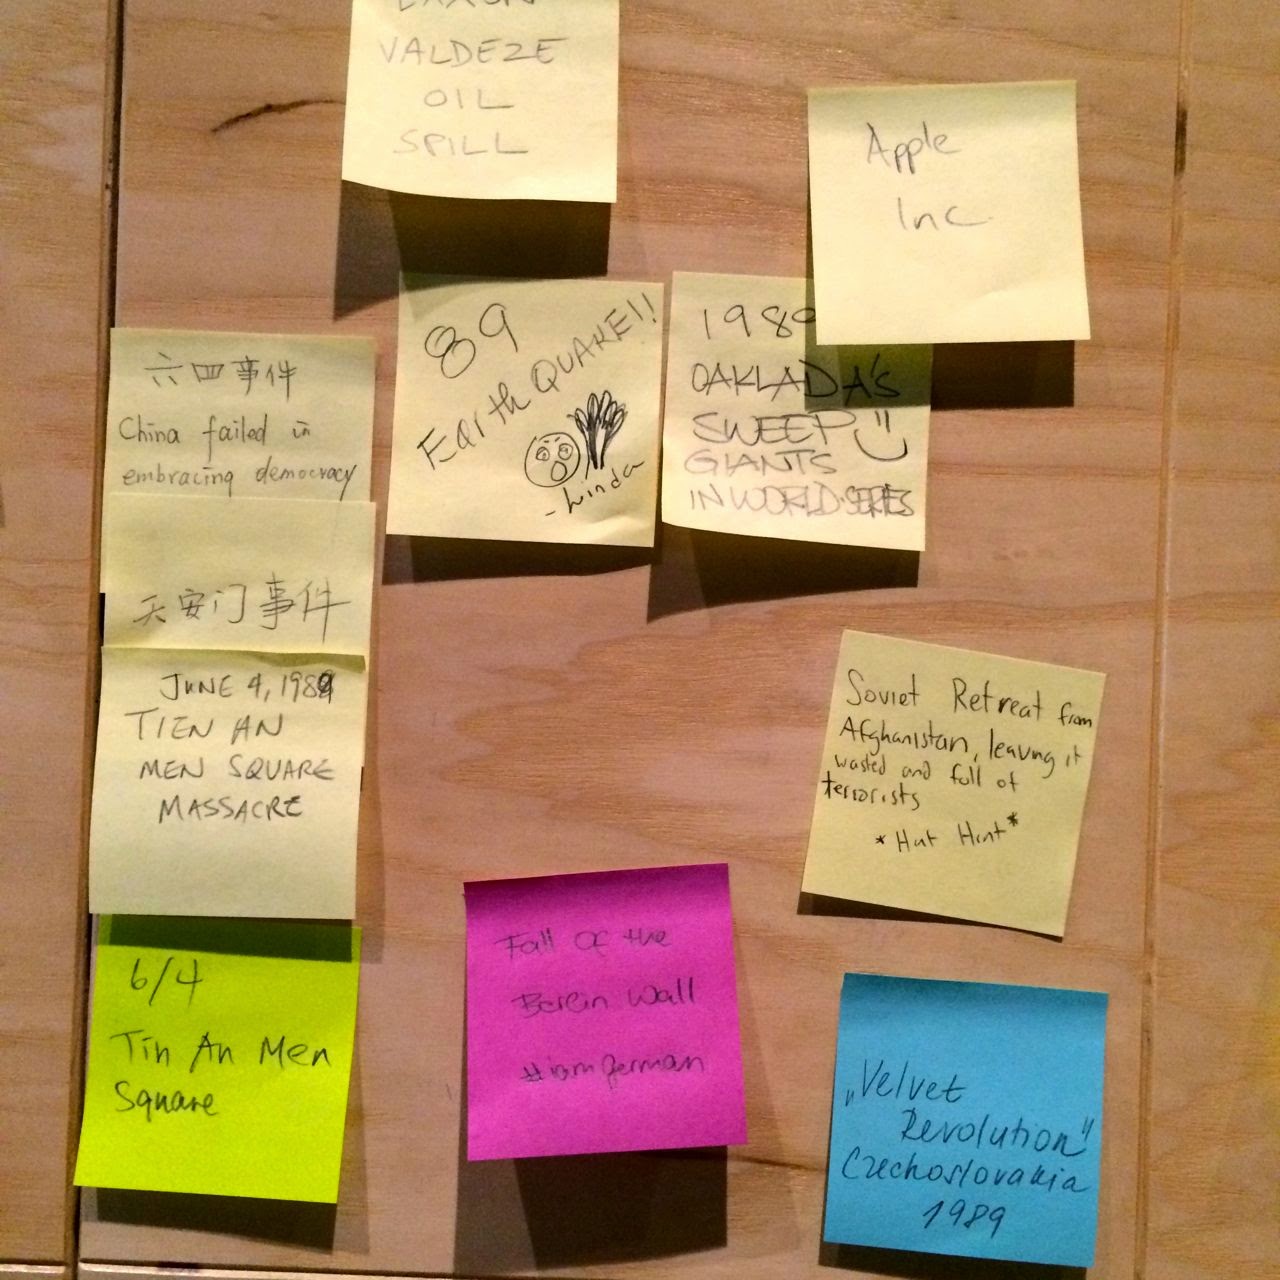 EXXON
VALDEZE
OIL
SPILL
Apple
Inc
89
EartH QUAKE!!
-Linda
1989
OAKLAD A'S
SWEEP
GIANTS
IN WORLD-SERIES
六四事件
China failed in
embracing democracy
天安门事件
JUNE 4, 1989
TIEN AN
MEN SQUARE
MASSACRE
Soviet Retreat from
Afghanistan, leaving it
wasted and full of
terrorists
*Hint Hint*
6/4
Tin An Men
Square
Fall of the
Berlin Wall
#iamgerman
„Velvet
Revolution"
Czechoslovakia
1989